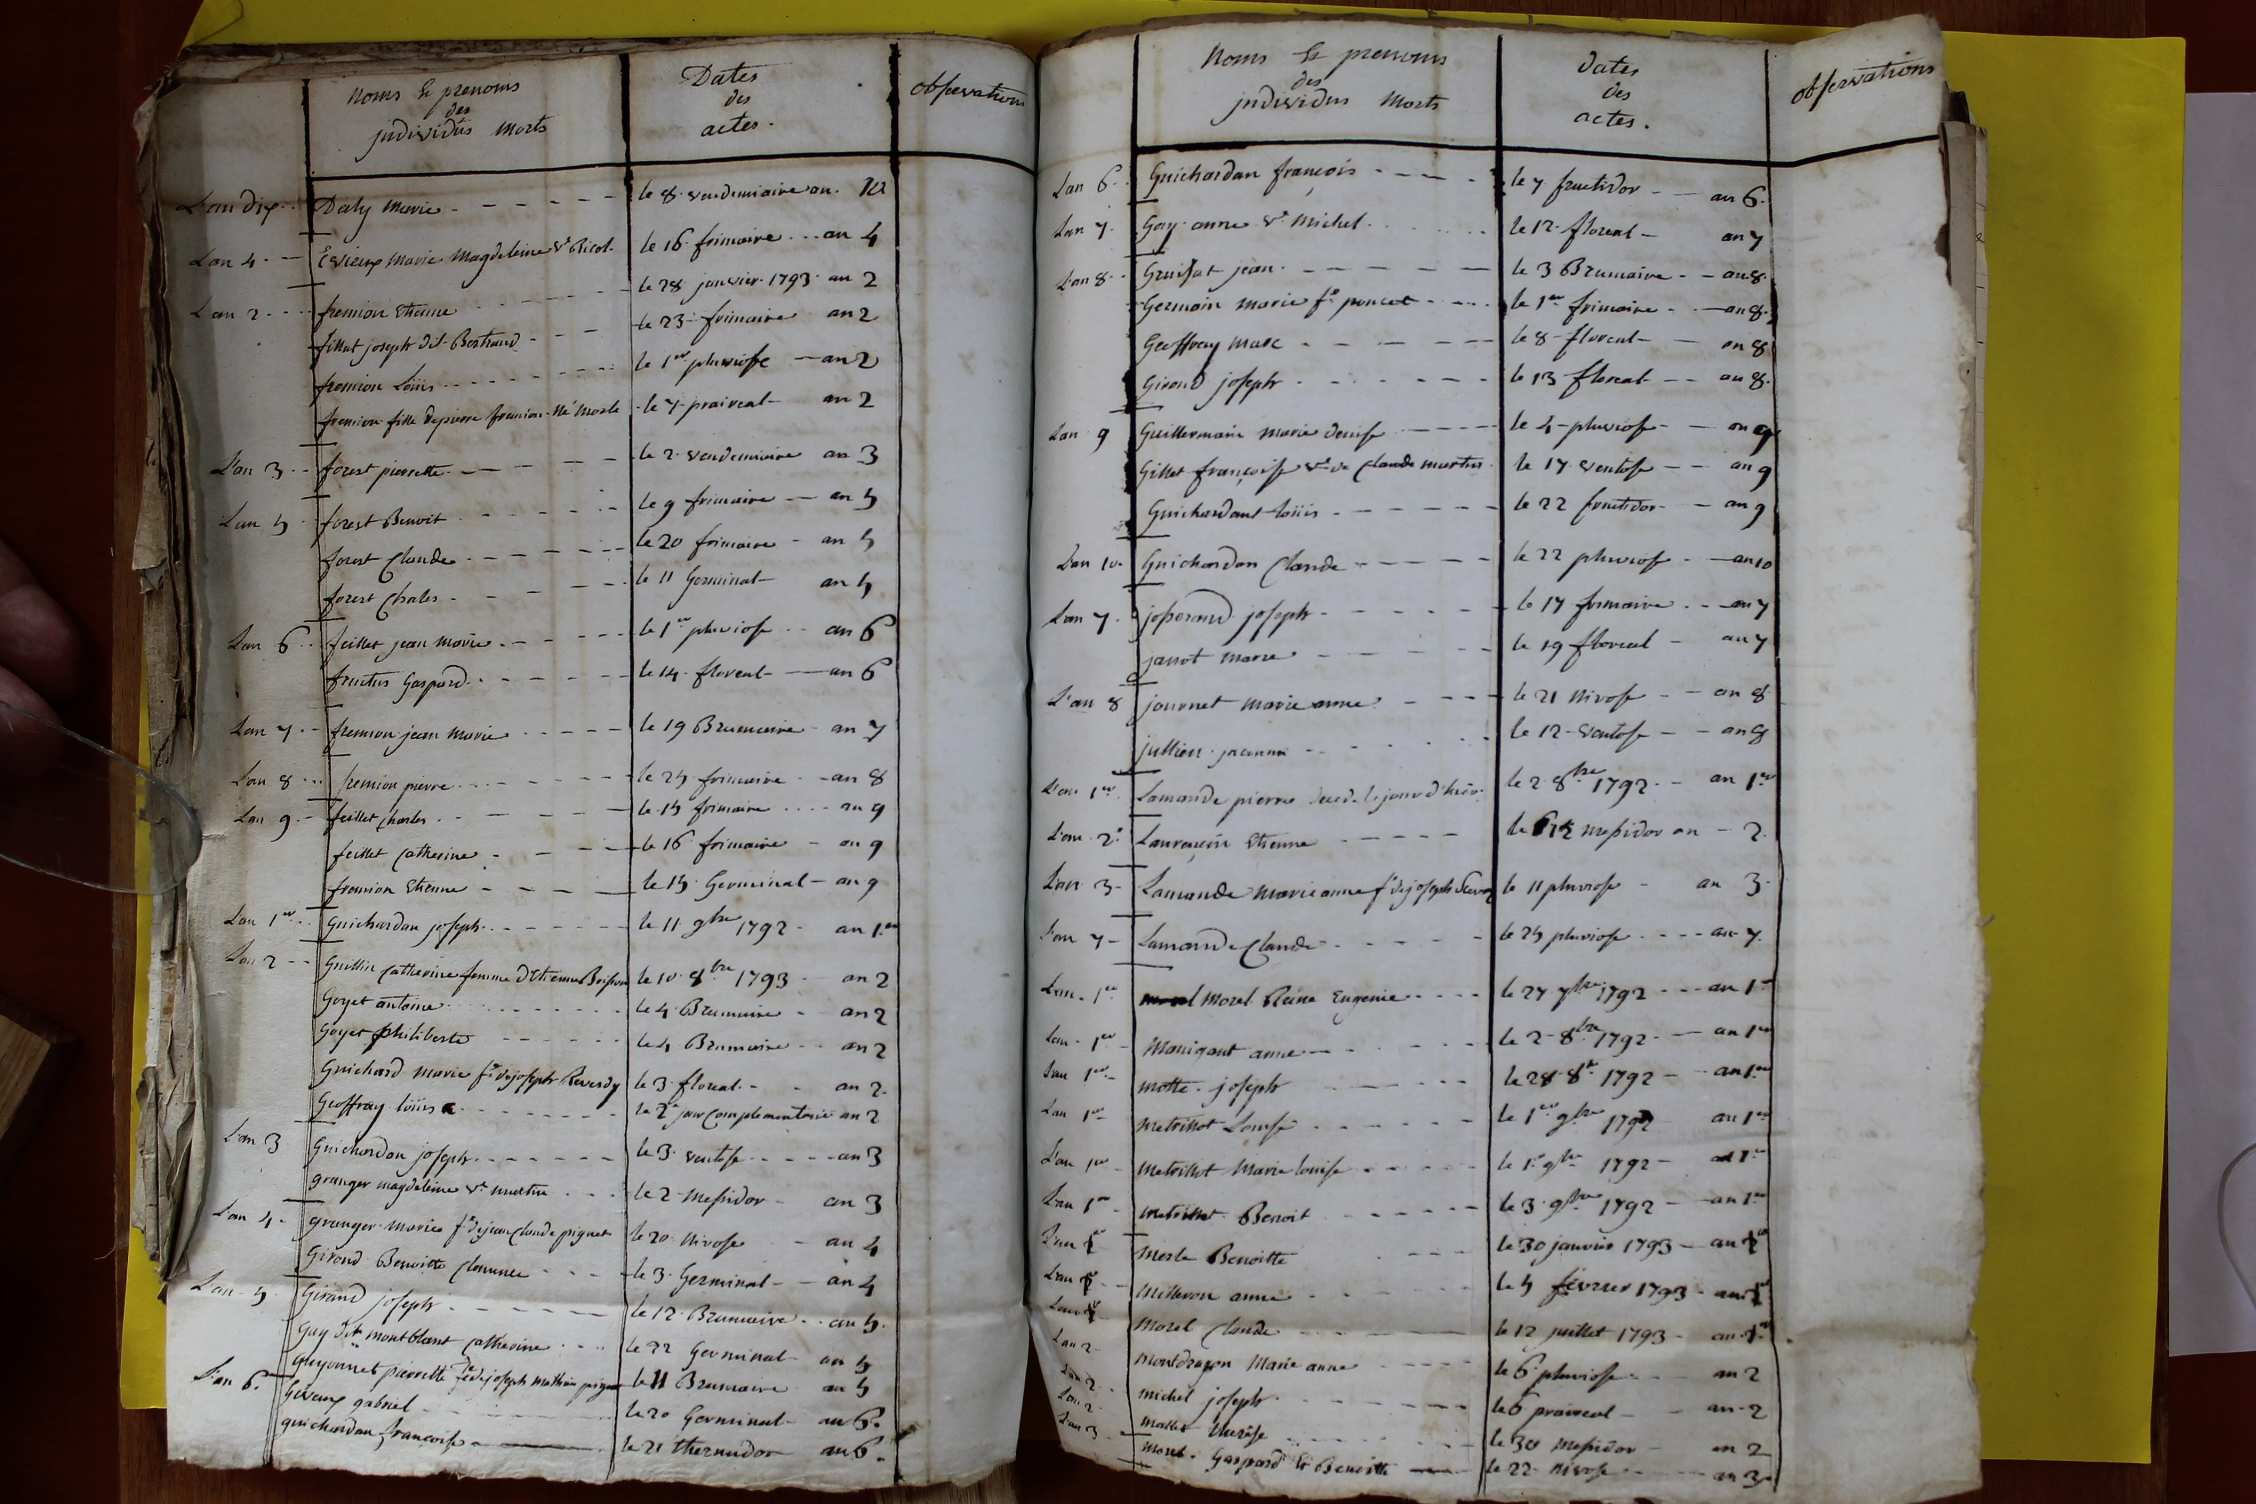 Noms & prenoms
des
jndividus Morts
Dates
des
actes.
observations
L'an dix Daly Marie le 8 vendemiaire an 10
L'an 4 Evieux Marie Magdeleine Ve Ricol le 16 frimaire an 4
L'an 2 fremion Etienne le 28 janvier 1793 an 2
fillat joseph dit Bertrand le 23 frimaire an 2
fremion Loüis le 1er pluviose an 2
fremion fille de pierre fremion Né Morte le 7 praireal an 2
L'an 3 forest pierrette le 2 vendemiaire an 3
L'an 5 forest Benoit le 9 frimaire an 5
forest Claude le 20 frimaire an 5
forest Chales le 11 Germinal an 5
L'an 6 feillet jean Marie le 1er pluviose an 6
fructus Gaspard le 14 floreal an 6
L'an 7 fremion jean Marie le 19 Brumaire an 7
L'an 8 fremion pierre le 25 frimaire an 8
L'an 9 feillet Charles le 15 frimaire an 9
feillet Catherine le 16 frimaire an 9
fremion Etienne le 15 Germinal an 9
L'an 1er Guichardan joseph le 11 9bre 1792 an 1er
L'an 2 Guillin Catherine femme d'Etienne le 10 8bre 1793 an 2
Goyet antoine le 4 Brumaire an 2
Goyet philiberte le 4 Brumaire an 2
Guichard marie fe de joseph Reverdy le 3 floreal an 2
Geoffray loüis le 2e jour Complementaire an 2
L'an 3 Guichardon joseph le 3 ventose an 3
granger magdeleine Ve le 2 Messidor an 3
L'an 4 granger marie fe de jean Claude pignet le 20 Nivose an 4
Giroud Benoitte le 3 Germinal an 4
L'an 5 Giraud joseph le 12 Brumaire an 5
Guy dit montblant Catherine le 22 Germinal an 5
Guyonnet pierrette fe de joseph Mathieu le 11 Brumaire an 5
L'an 6 Giveux gabriel le 20 Germinal an 6
guichardan francoise le 21 thermidor an 6
Noms & prenoms
des
jndividus Morts
dates
des
actes.
observations
L'an 6 Guichardan françois le 7 fructidor an 6
L'an 7 Gay anne Ve Michel le 12 floreal an 7
L'an 8 Gruisat jean le 3 Brumaire an 8
Germain marie fe poncet le 1er frimaire an 8
Geoffray Marc le 8 floreal an 8
Giroud joseph le 13 floreal an 8
L'an 9 Guillermain marie denise le 4 pluviose an 9
Gillet françoise Ve de Claude martin le 17 ventose an 9
Guichardant loüis le 22 fructidor an 9
L'an 10 Guichardon Claude le 22 pluviose an 10
L'an 7 josserand joseph le 17 frimaire an 7
janot marie le 19 floreal an 7
L'an 8 journet marie anne le 21 Nivose an 8
jullien jeanne le 12 ventose an 8
L'an 1er Lamande pierre decede le jour d'hier le 2 8bre 1792 an 1er
L'an 2e Laurençin Etienne le 15 messidor an 2
L'an 3 Lamande Marie anne fe de joseph le 11 pluviose an 3
L'an 7 Lamande Claude le 25 pluviose an 7
L'an 1er Morel Reine Eugenie le 27 7bre 1792 an 1er
L'an 1er Manigant anne le 2 8bre 1792 an 1er
L'an 1er motte joseph le 28 8bre 1792 an 1er
L'an 1er Metrillot Louise le 1er 9bre 1792 an 1er
L'an 1er Metrillot Marie louise le 1er 9bre 1792 an 1er
L'an 1er metrillot Benoit le 3 9bre 1792 an 1er
L'an 1er Merle Benoitte le 30 janvier 1793 an 1er
L'an 1er Milleron anne le 5 fevrier 1793 an 1er
L'an 1er Morel Claude le 12 juillet 1793 an 1er
L'an 2 Montdragon Marie anne le 6 pluviose an 2
L'an 2 michel joseph le 6 praireal an 2
L'an 2 mallet therese le 30 Messidor an 2
L'an 3 Morel Gaspard & Benoitte le 22 Nivose an 3